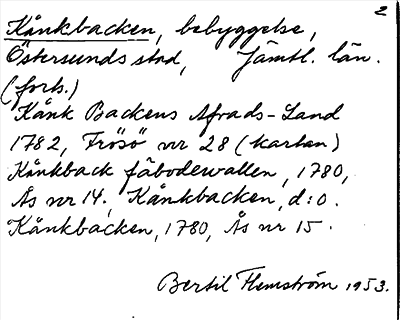 2
Kånkbacken, bebyggelse,
Östersunds stad, Jämtl. län.
(forts.)
Kånk Backens Afrads-Land
1782, Frösö nr 28 (kartan)
Kånkback fäbodewallen, 1780,
Ås nr 14. Kånkbacken, d:o.
Kånkbacken, 1780, Ås nr 15.
Bertil Flemström 1953.